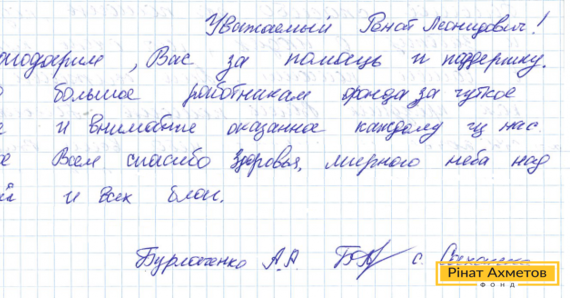 Уважаемый Ренат Леонидович!
агодарим, Вас за помощь и поддержку.
большое работникам фонда за чуткое
и внимание оказанное каждому из нас.
Всем спасибо Здоровья, мирного неба над
и всех благ.
Бурлаченко А.А. с.
Рінат Ахметов
ФОНД